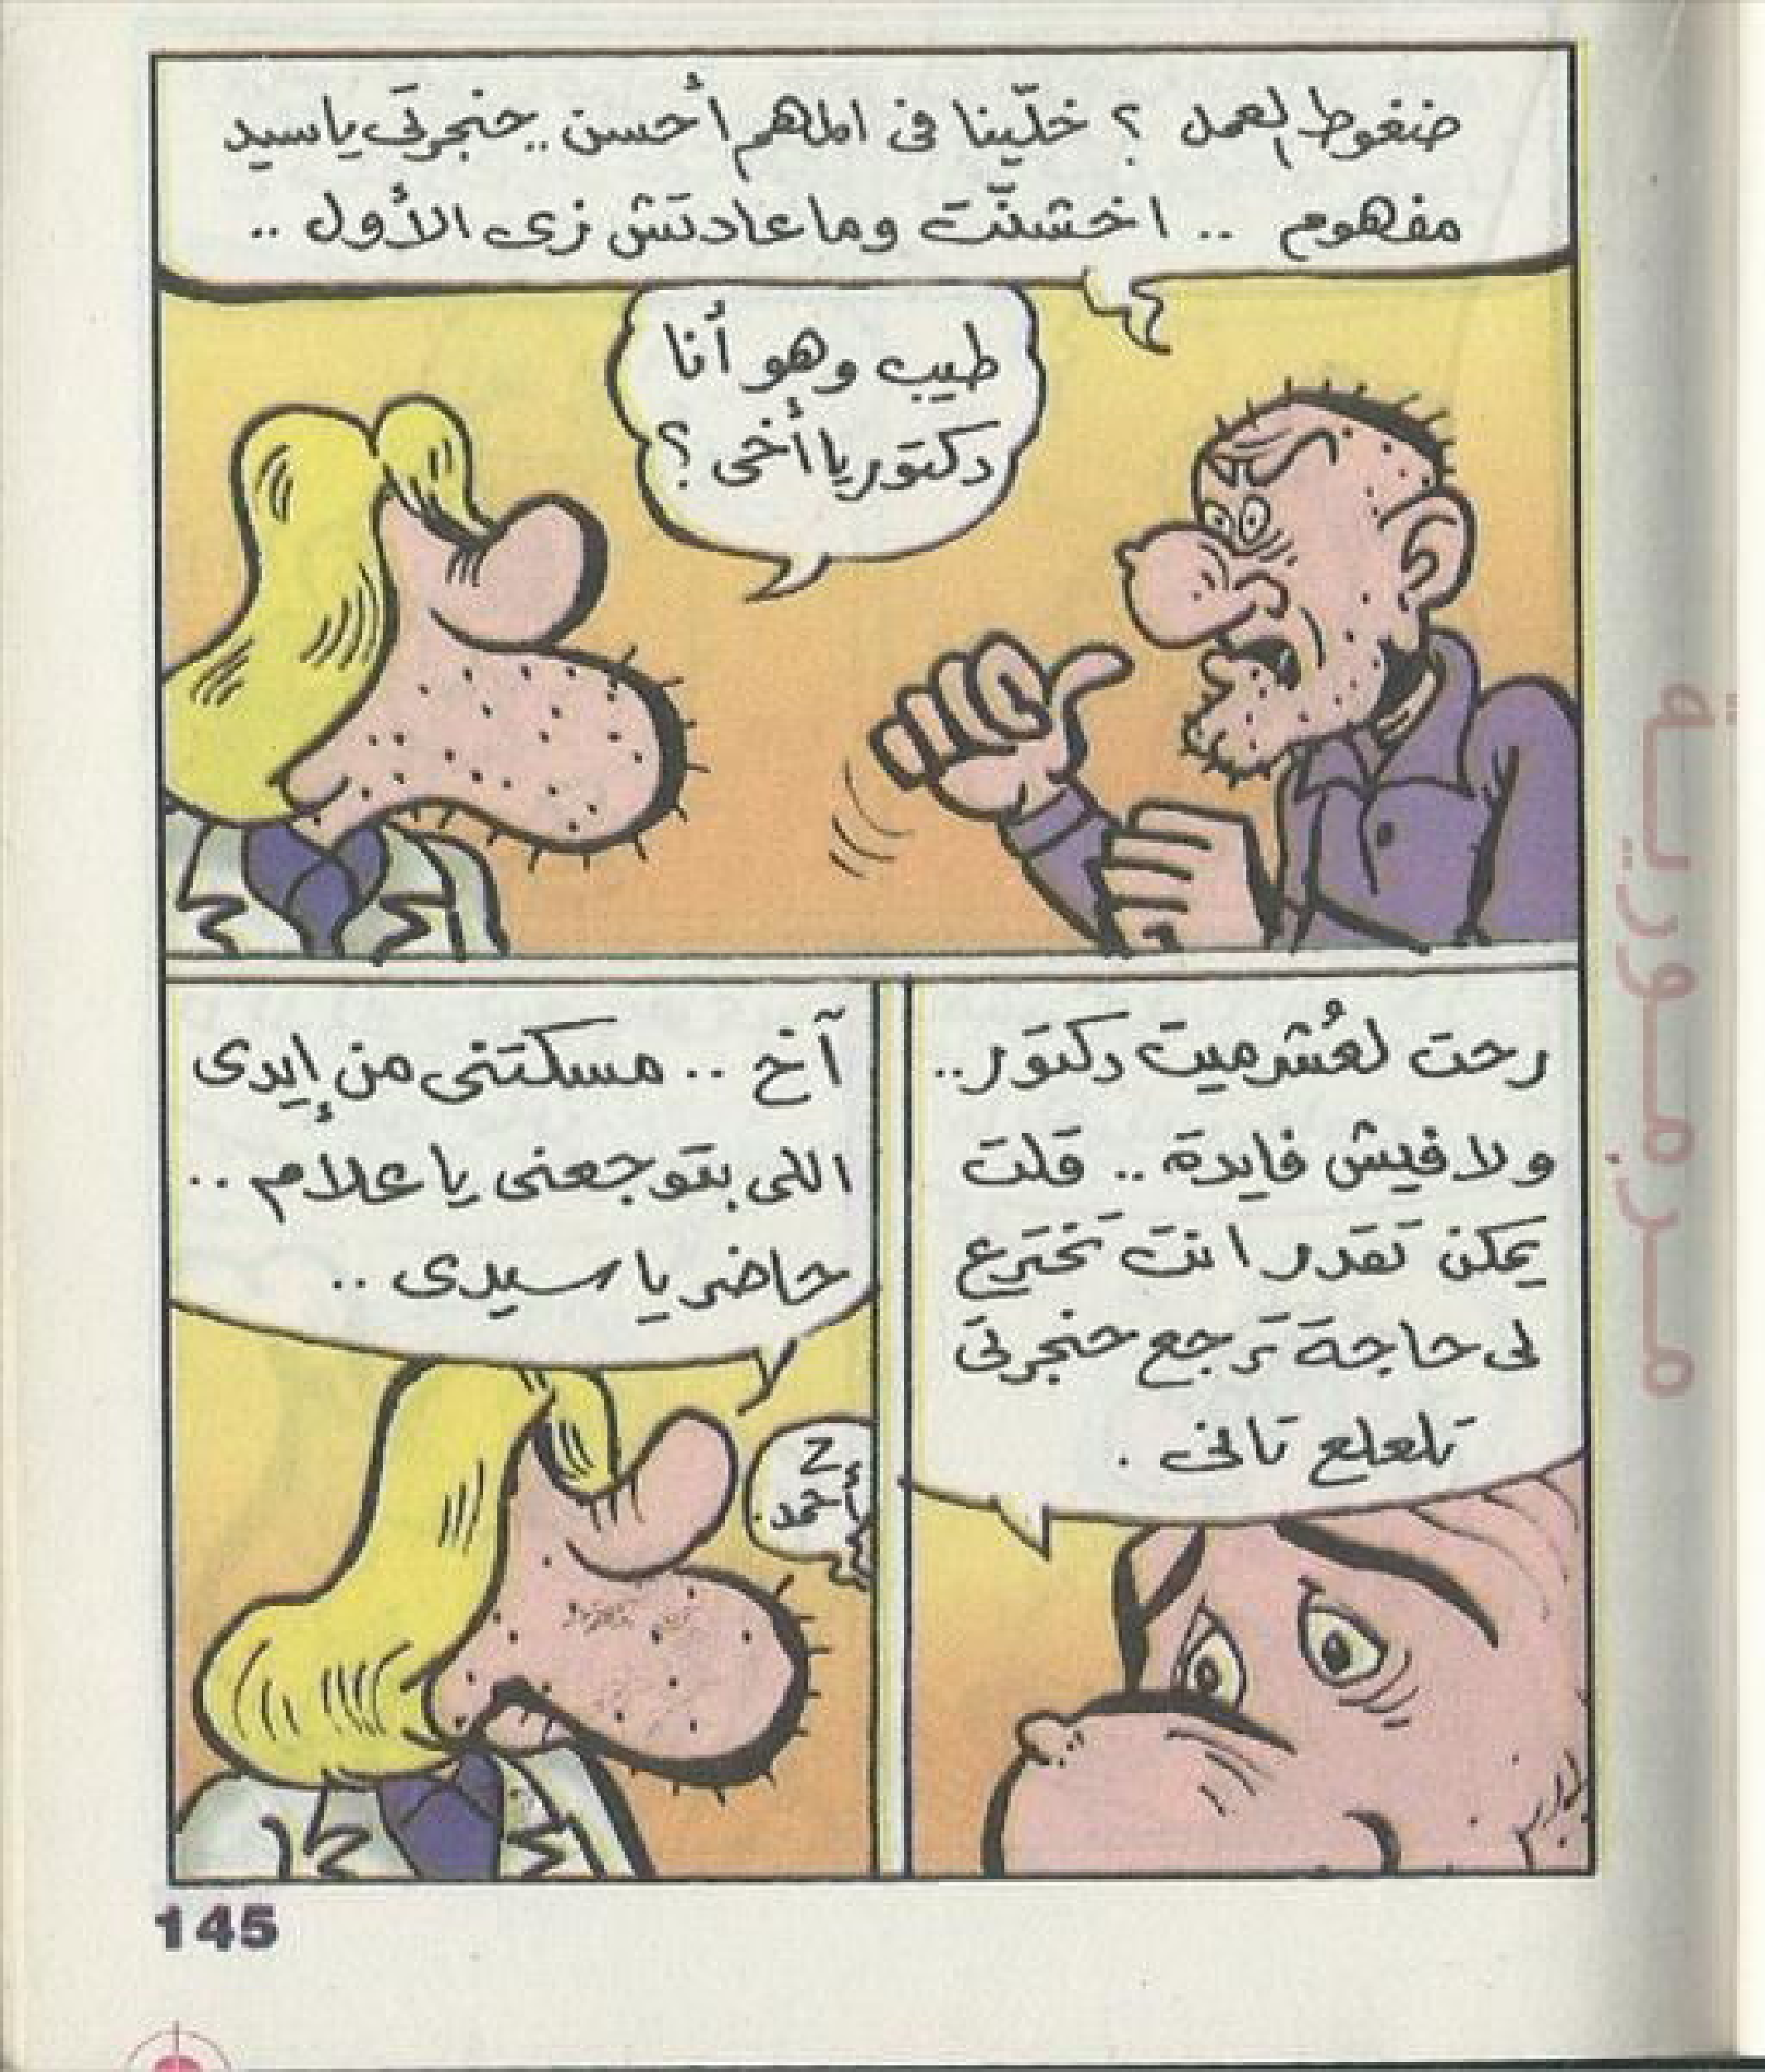 ضغوط العمل ؟ خلّينا فى المهم أحسن .. حنجرتى ياسيد
مفهوم .. اخشنّت وماعادتش زى الأول ..
طيب وهو أنا
دكتور يا أخى ؟
رحت لعُشرميت دكتور ..
ولا فيش فايدة .. قلت
يمكن تقدر انت تخترع
لى حاجة ترجع حنجرتى
تلعلع تانى .
آخ .. مسكتنى من إيدى
اللى بتوجعنى يا علام ..
حاضر يا سيدى ..
145
مرمورية